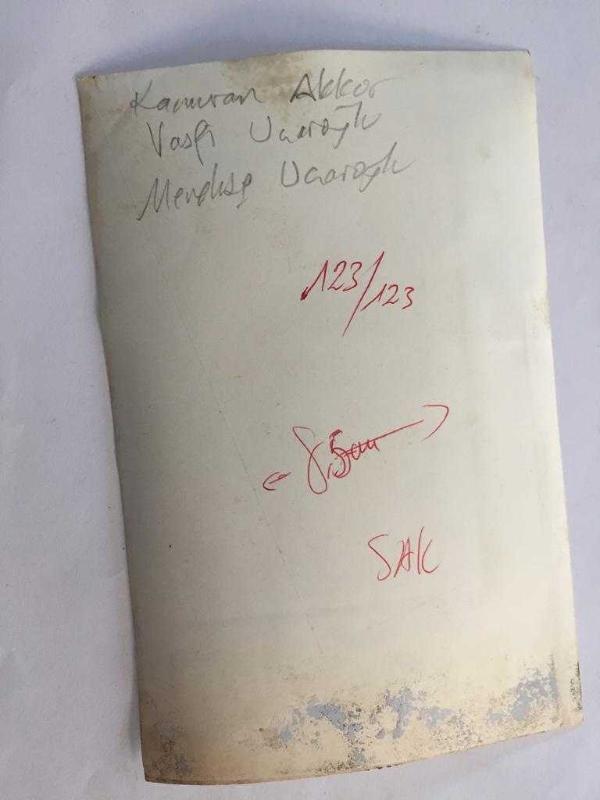 Kamuran Akkor
Vasfi Uçaroğlu
Mendhsp Ucaroglu
123/123
8,5cm
SAK